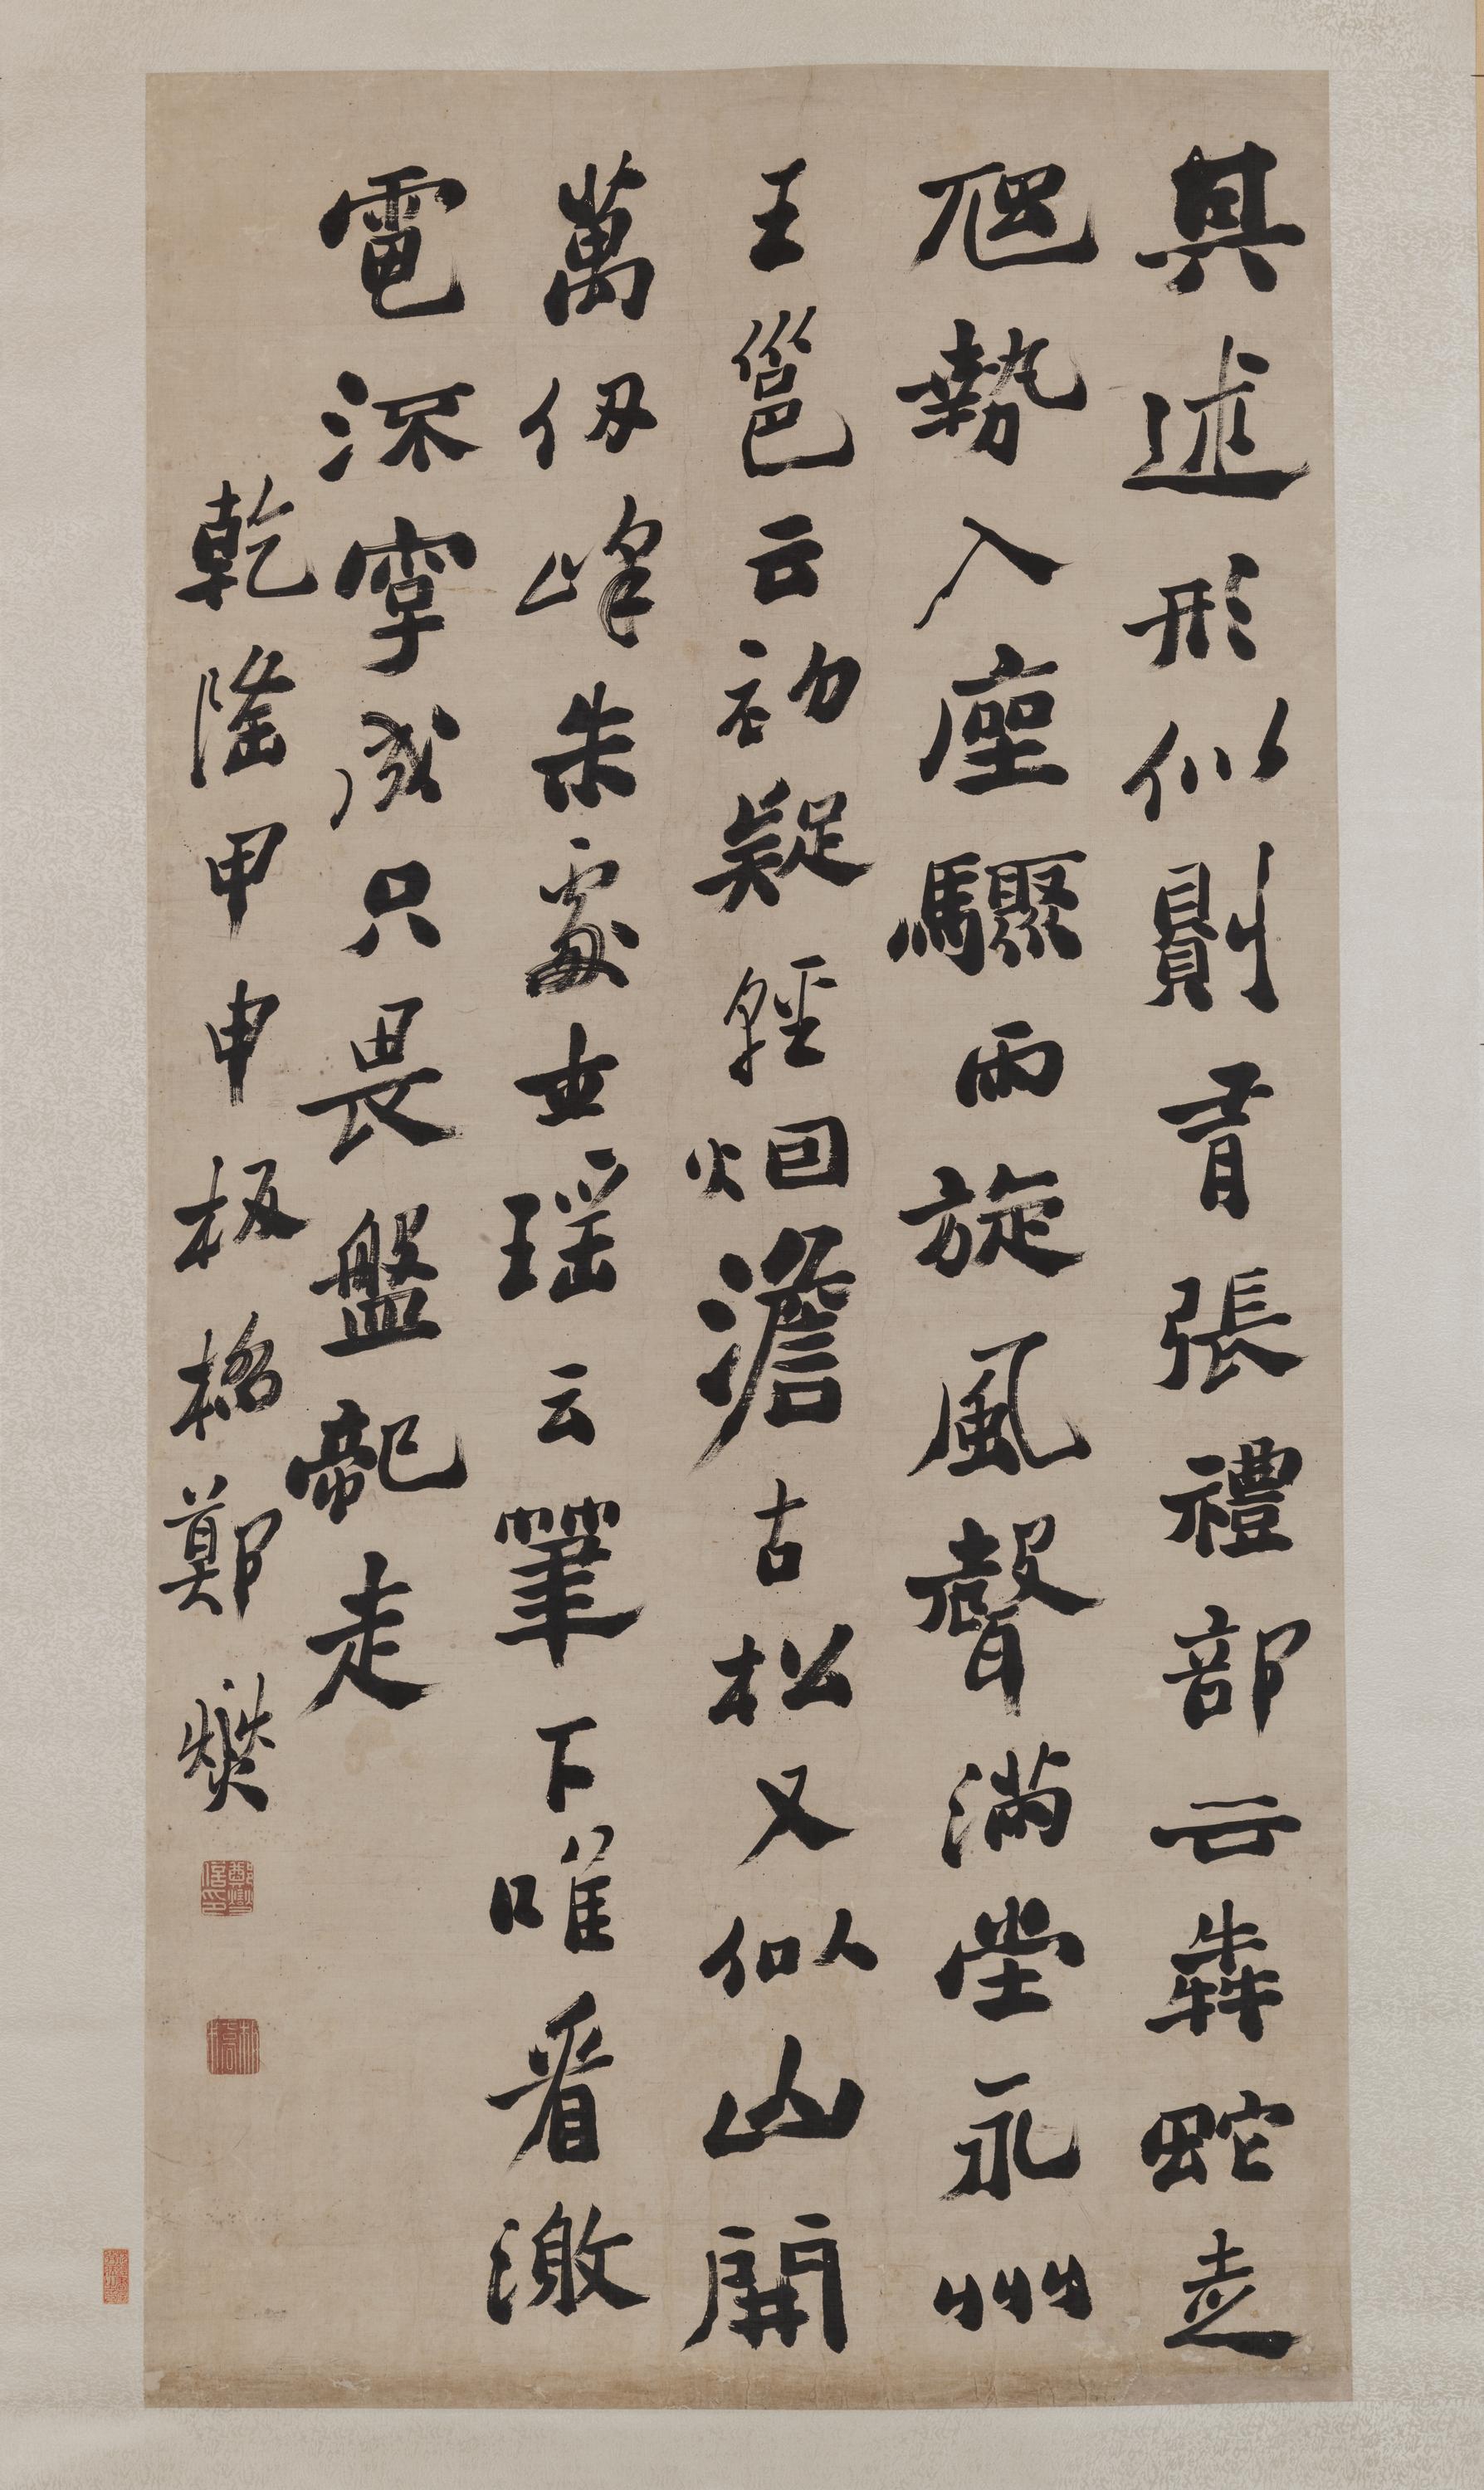 其述形似則有張禮部云犇蛇走
虺勢入座驟雨旋風聲滿堂永州
王邕云初疑輕烟澹古松又似山開
萬仞峰朱處士瑤云筆下唯看激
電流字成只畏盤龍走
乾隆甲申板橋鄭燮
鄭燮信印